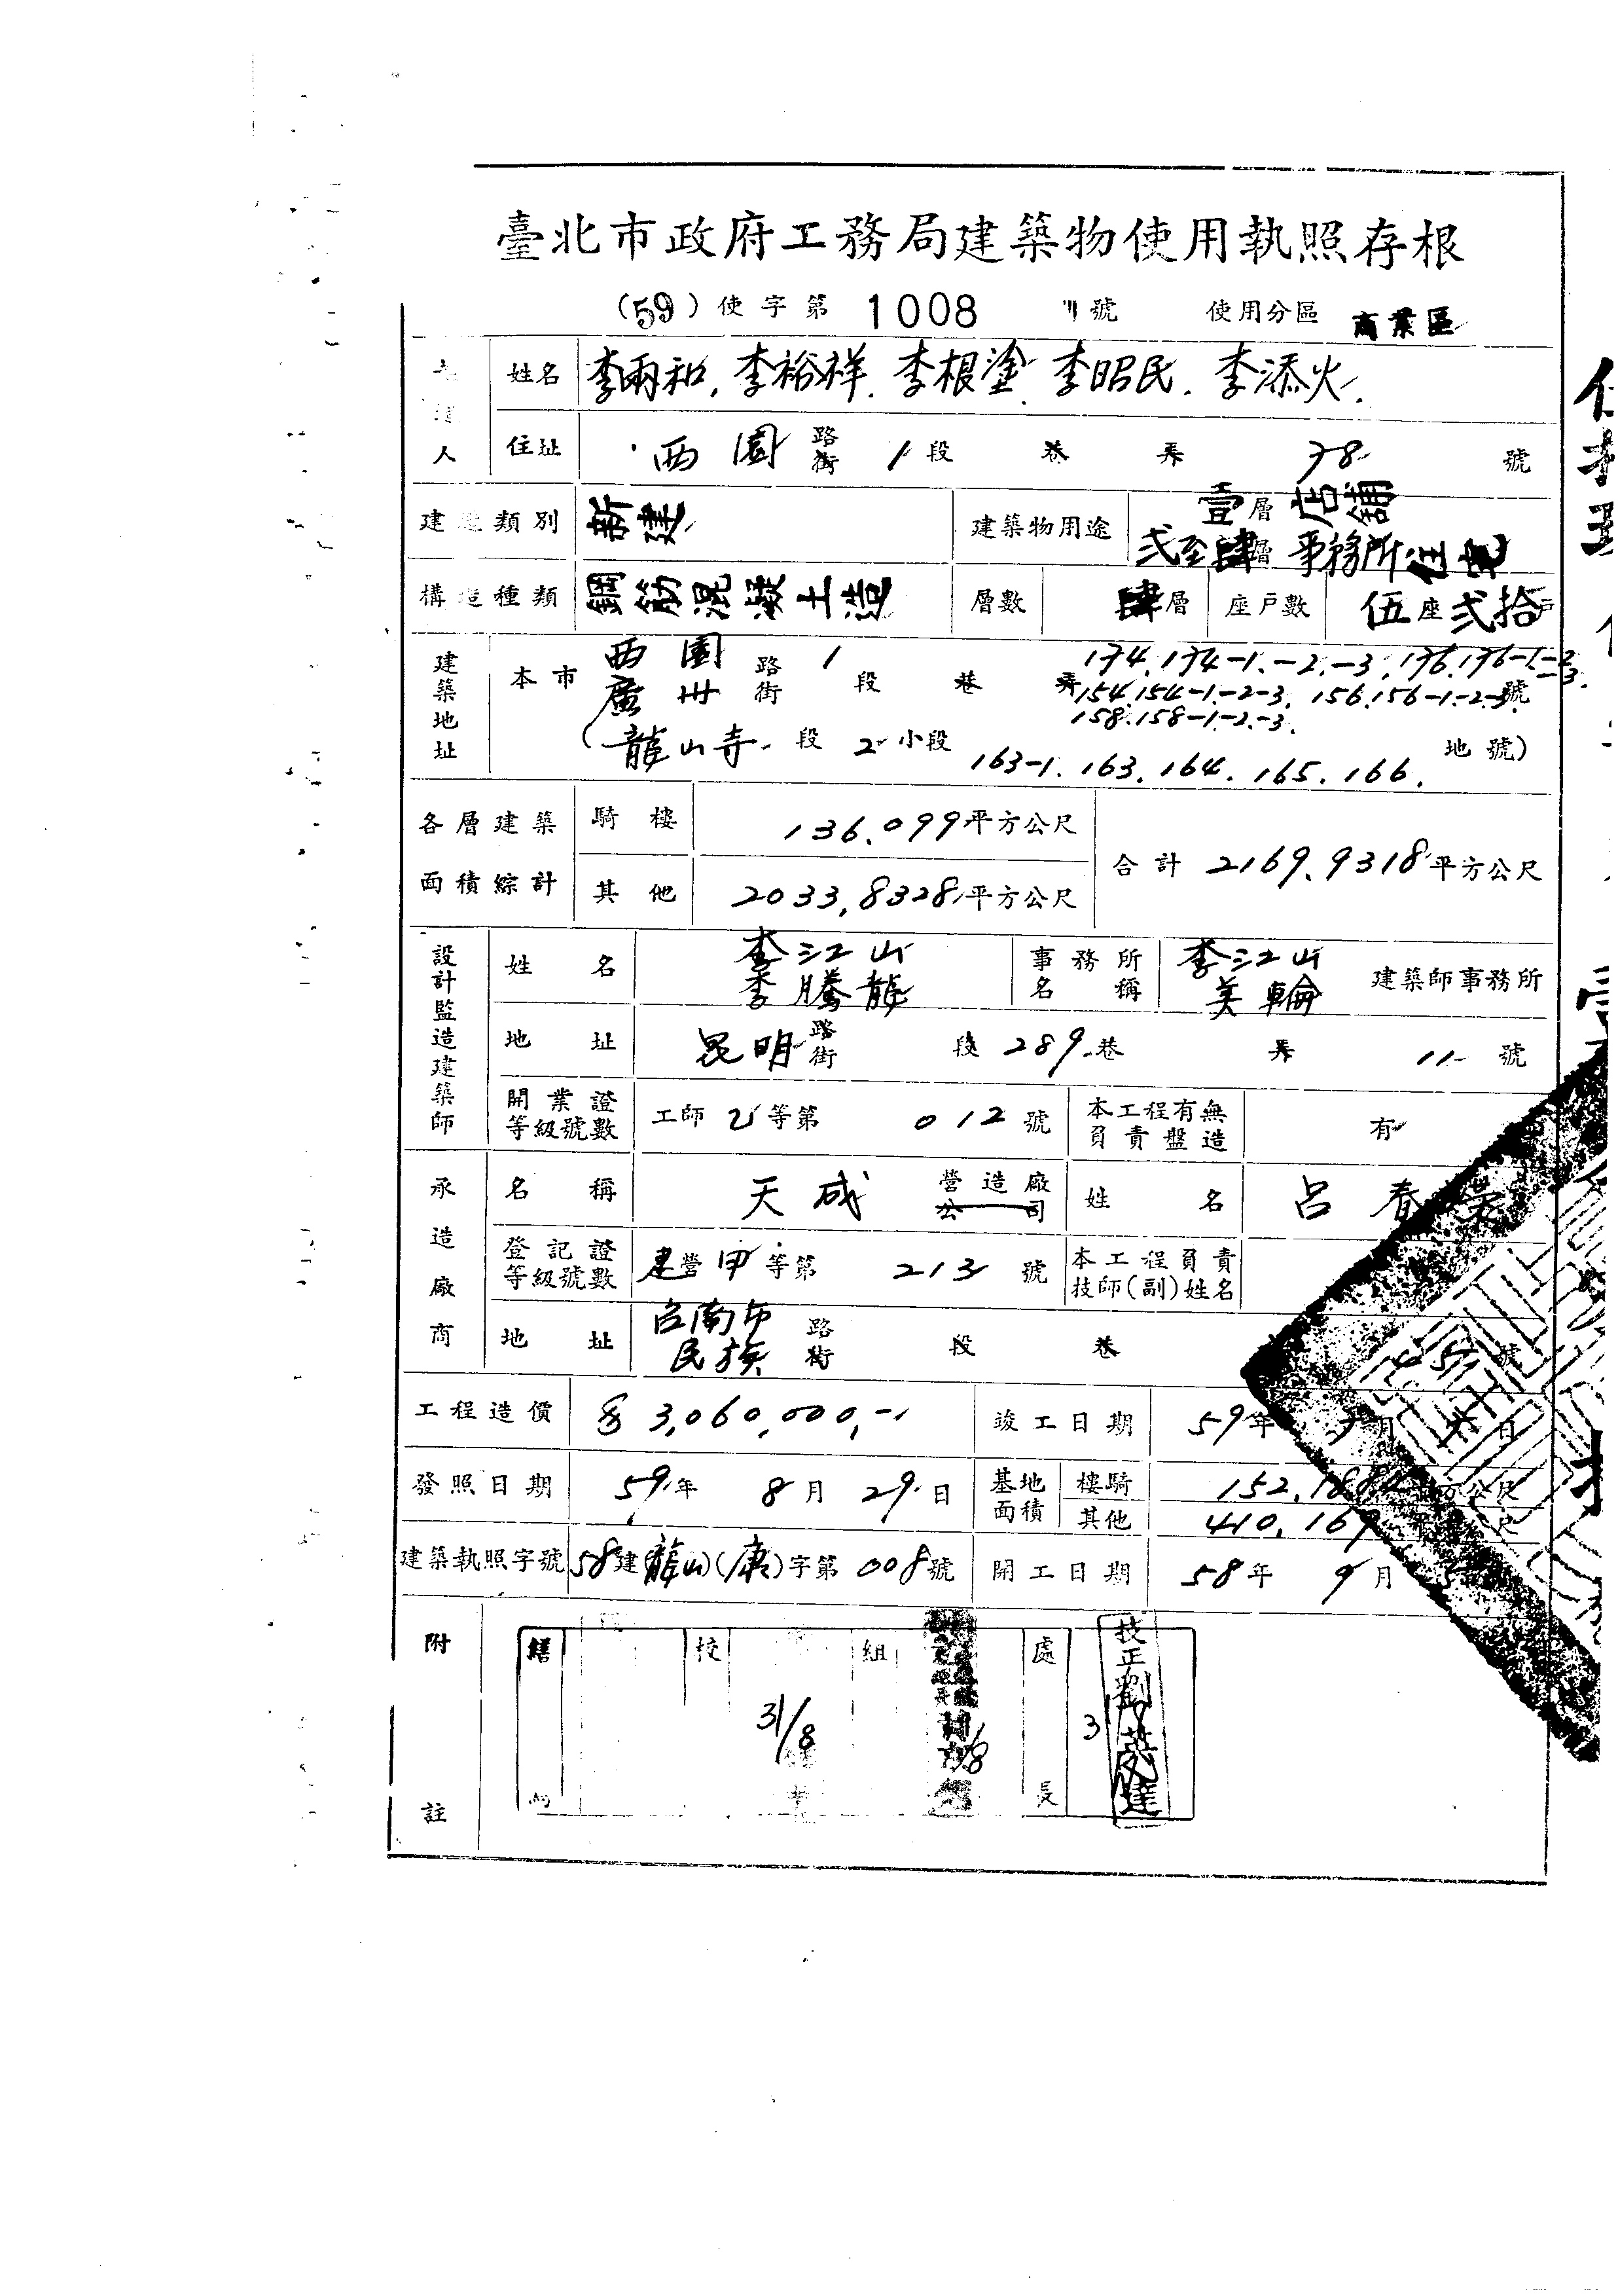 臺北市政府工務局建築物使用執照存根
(59)使字第 1008 號 使用分區 商業區
人 姓名 李兩和.李裕祥.李根塗.李昭民.李添火.
住址 西園 路街 1段 巷 弄 78 號
建造類別 新建 建築物用途 壹層店舖
弍至肆層事務所住宅
構造種類 鋼筋混凝土造 層數 肆層 座戶數 伍座弍拾戶
建築地址 本市 西園 路 1 段 巷 弄 174.174-1.-2.-3.176.176-1.-2-3.
廣州 街 154.154-1.-2-3.156.156-1-2-3.號
158.158-1-2-3.
(龍山寺 段 2 小段 163-1.163.164.165.166. 地號)
各層建築面積綜計 騎樓 136.099平方公尺 合計 2169.9318平方公尺
其他 2033.8328平方公尺
設計監造建築師 姓名 李江山 李騰龍 事務所名稱 李江山 美輪 建築師事務所
地址 昆明 路街 段 289巷 弄 11 號
開業證等級號數 工師乙等第 012 號 本工程有無負責盤造 有
承造廠商 名稱 天成 營造廠公司 姓名 呂春
登記證等級號數 建營甲等第 213 號 本工程負責技師(副)姓名
地址 台南市 民族 路街 段 巷 號
工程造價 3,060,000,- 竣工日期 59年 月 日
發照日期 59年 8月 29日 基地面積 樓騎 152.188 公尺
其他 410.169 尺
建築執照字號 58建(龍山)(康)字第008號 開工日期 58年 9月
附註 繕 校 組 處長
31/8
技正劉英達